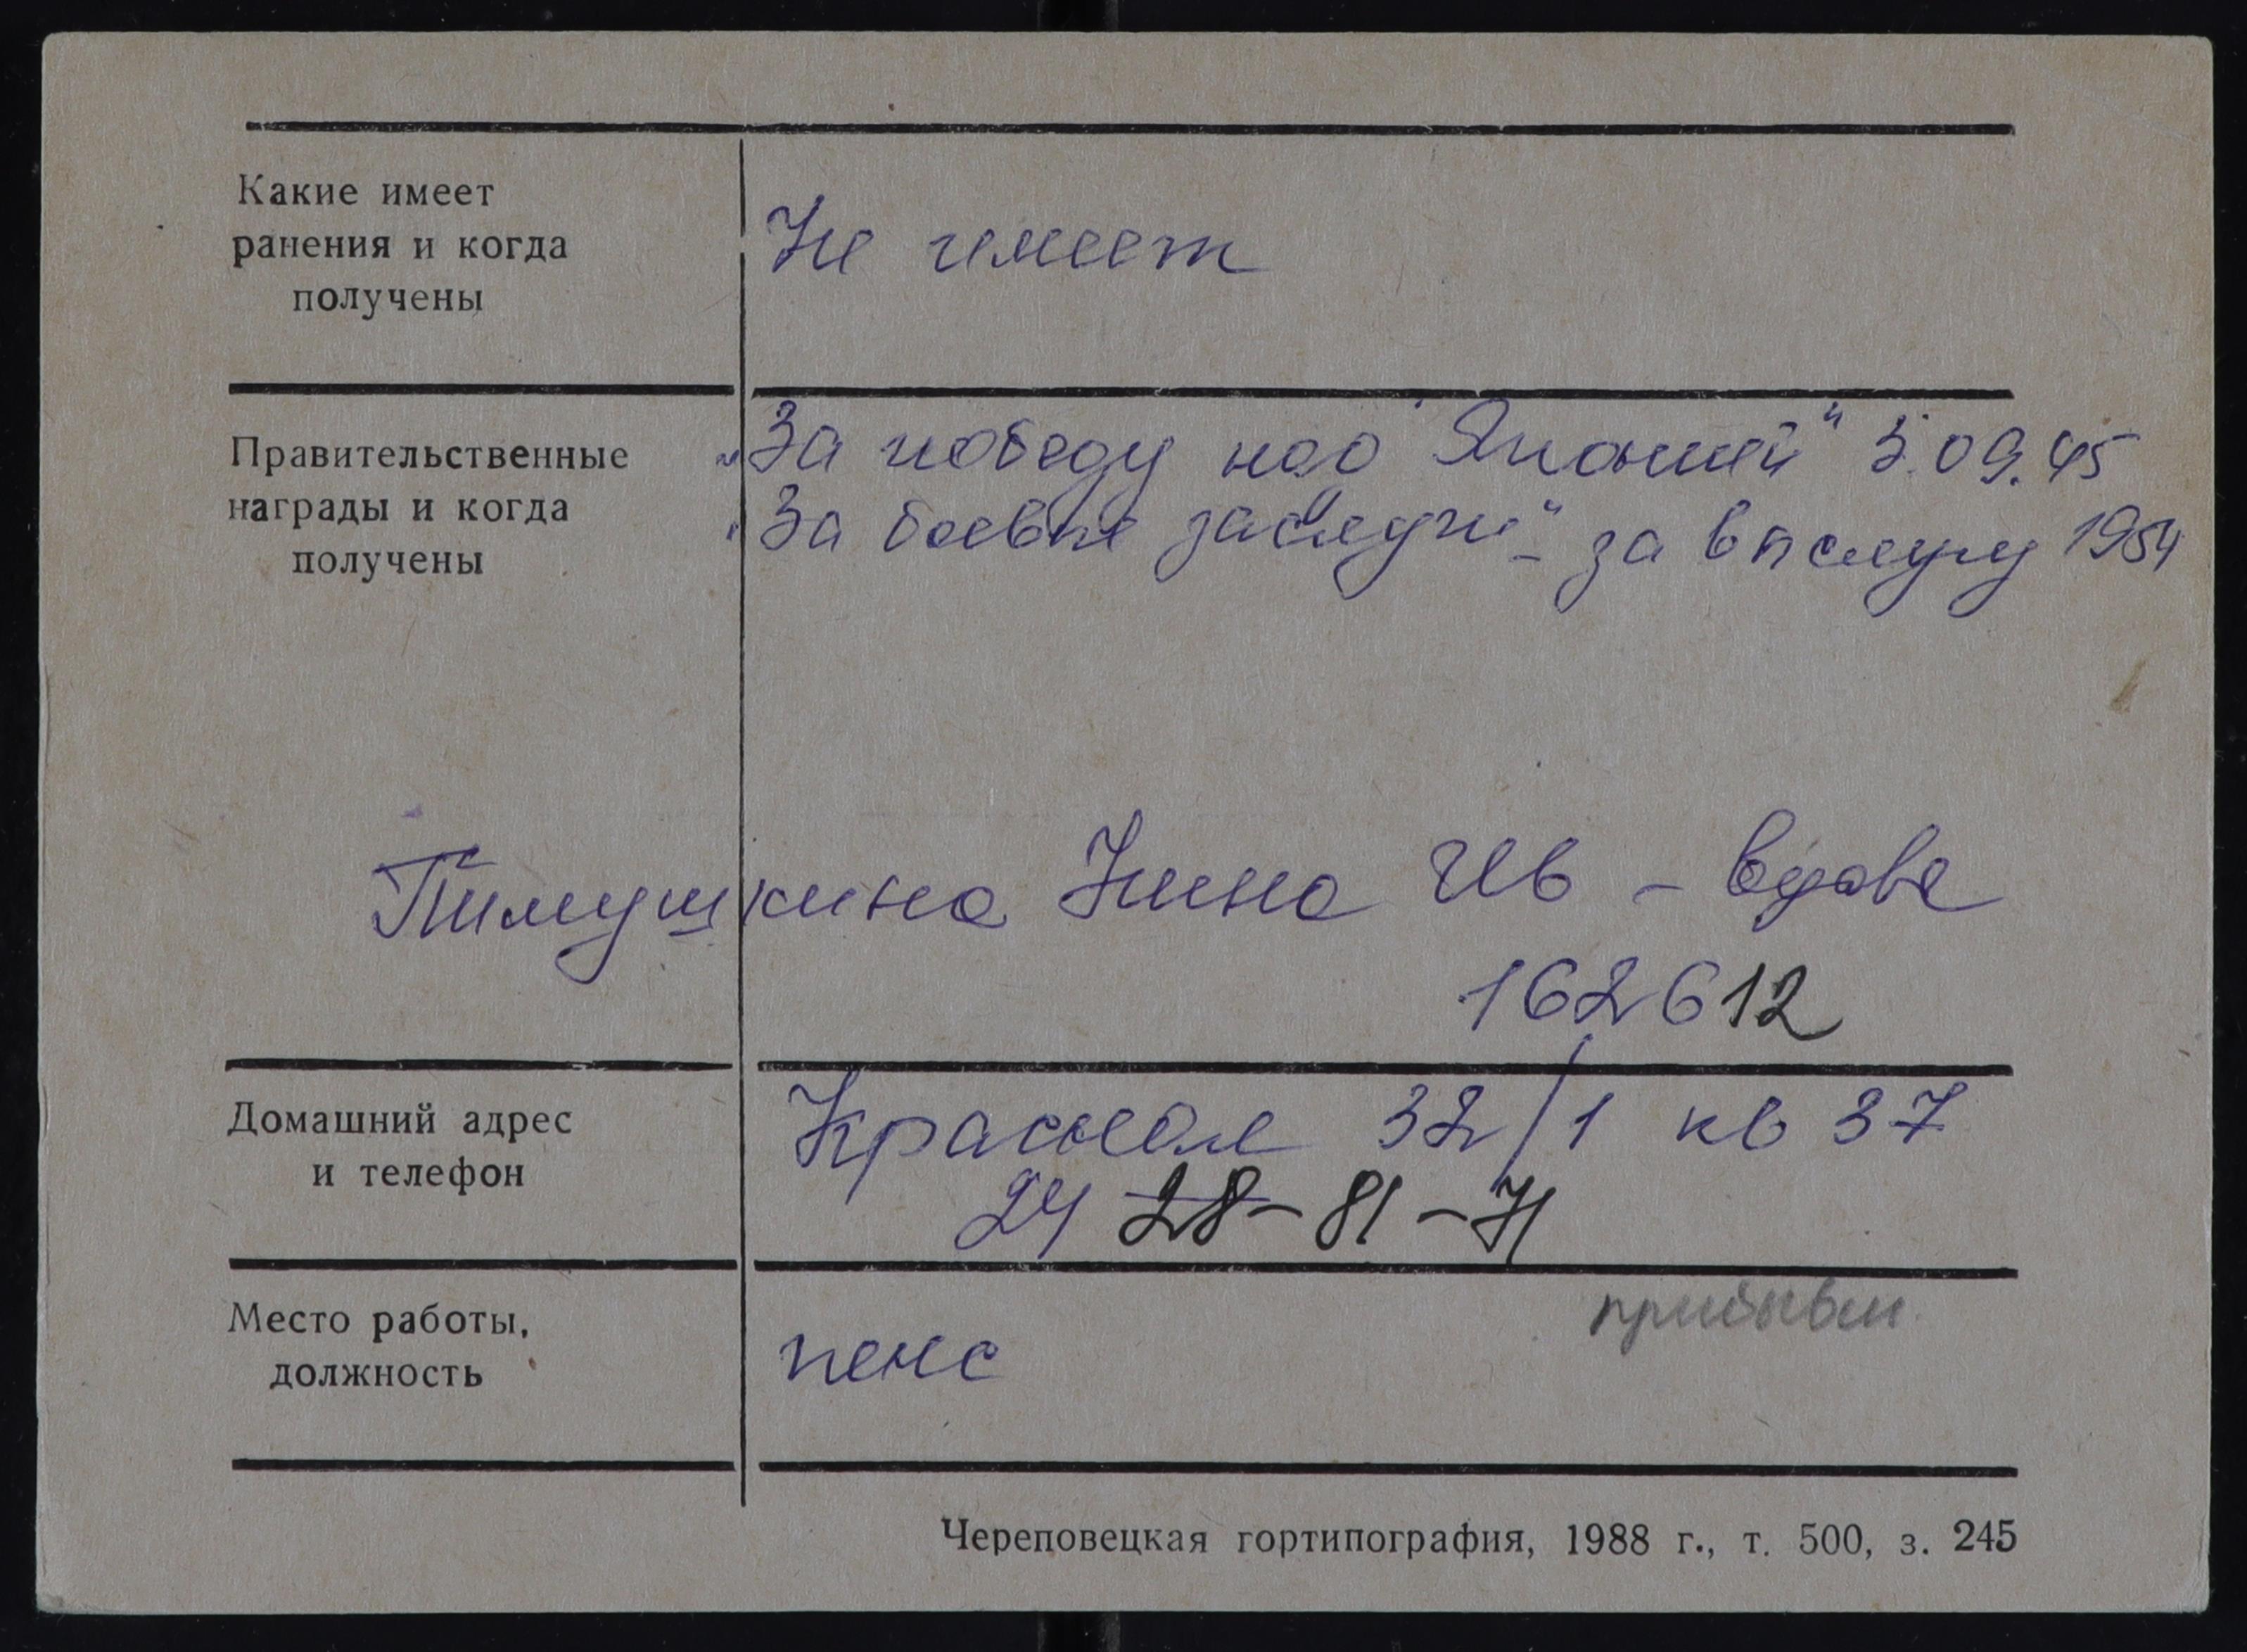 Какие имеет
ранения и когда
получены
Не имеет
Правительственные
награды и когда
получены
„За победу над Японией" 3.09.45
„За боевые заслуги" - за выслугу 1954
Тимушкина Нина Ив - вдова
162612
Домашний адрес
и телефон
Краснодон 32/1 кв 37
24 28-81-71
Место работы,
должность
пенс
прибывш
Череповецкая гортипография, 1988 г., т. 500, з. 245